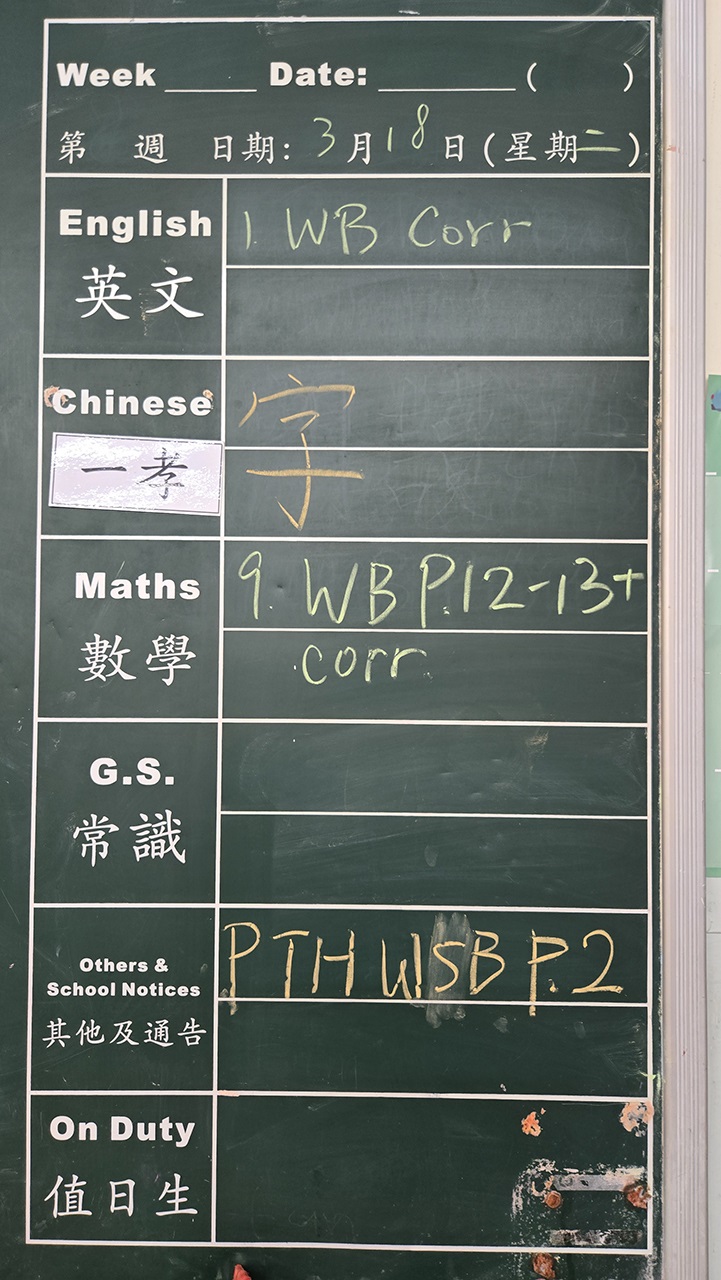 Week ____ Date: ______ ( )
第 週 日期: 3月18日(星期二)
English 1. WB Corr
英文
Chinese 字
一孝
Maths 9. WB P.12-13+
數學 corr.
G.S.
常識
Others & PTH W
School Notices SB P.2
其他及通告
On Duty
值日生